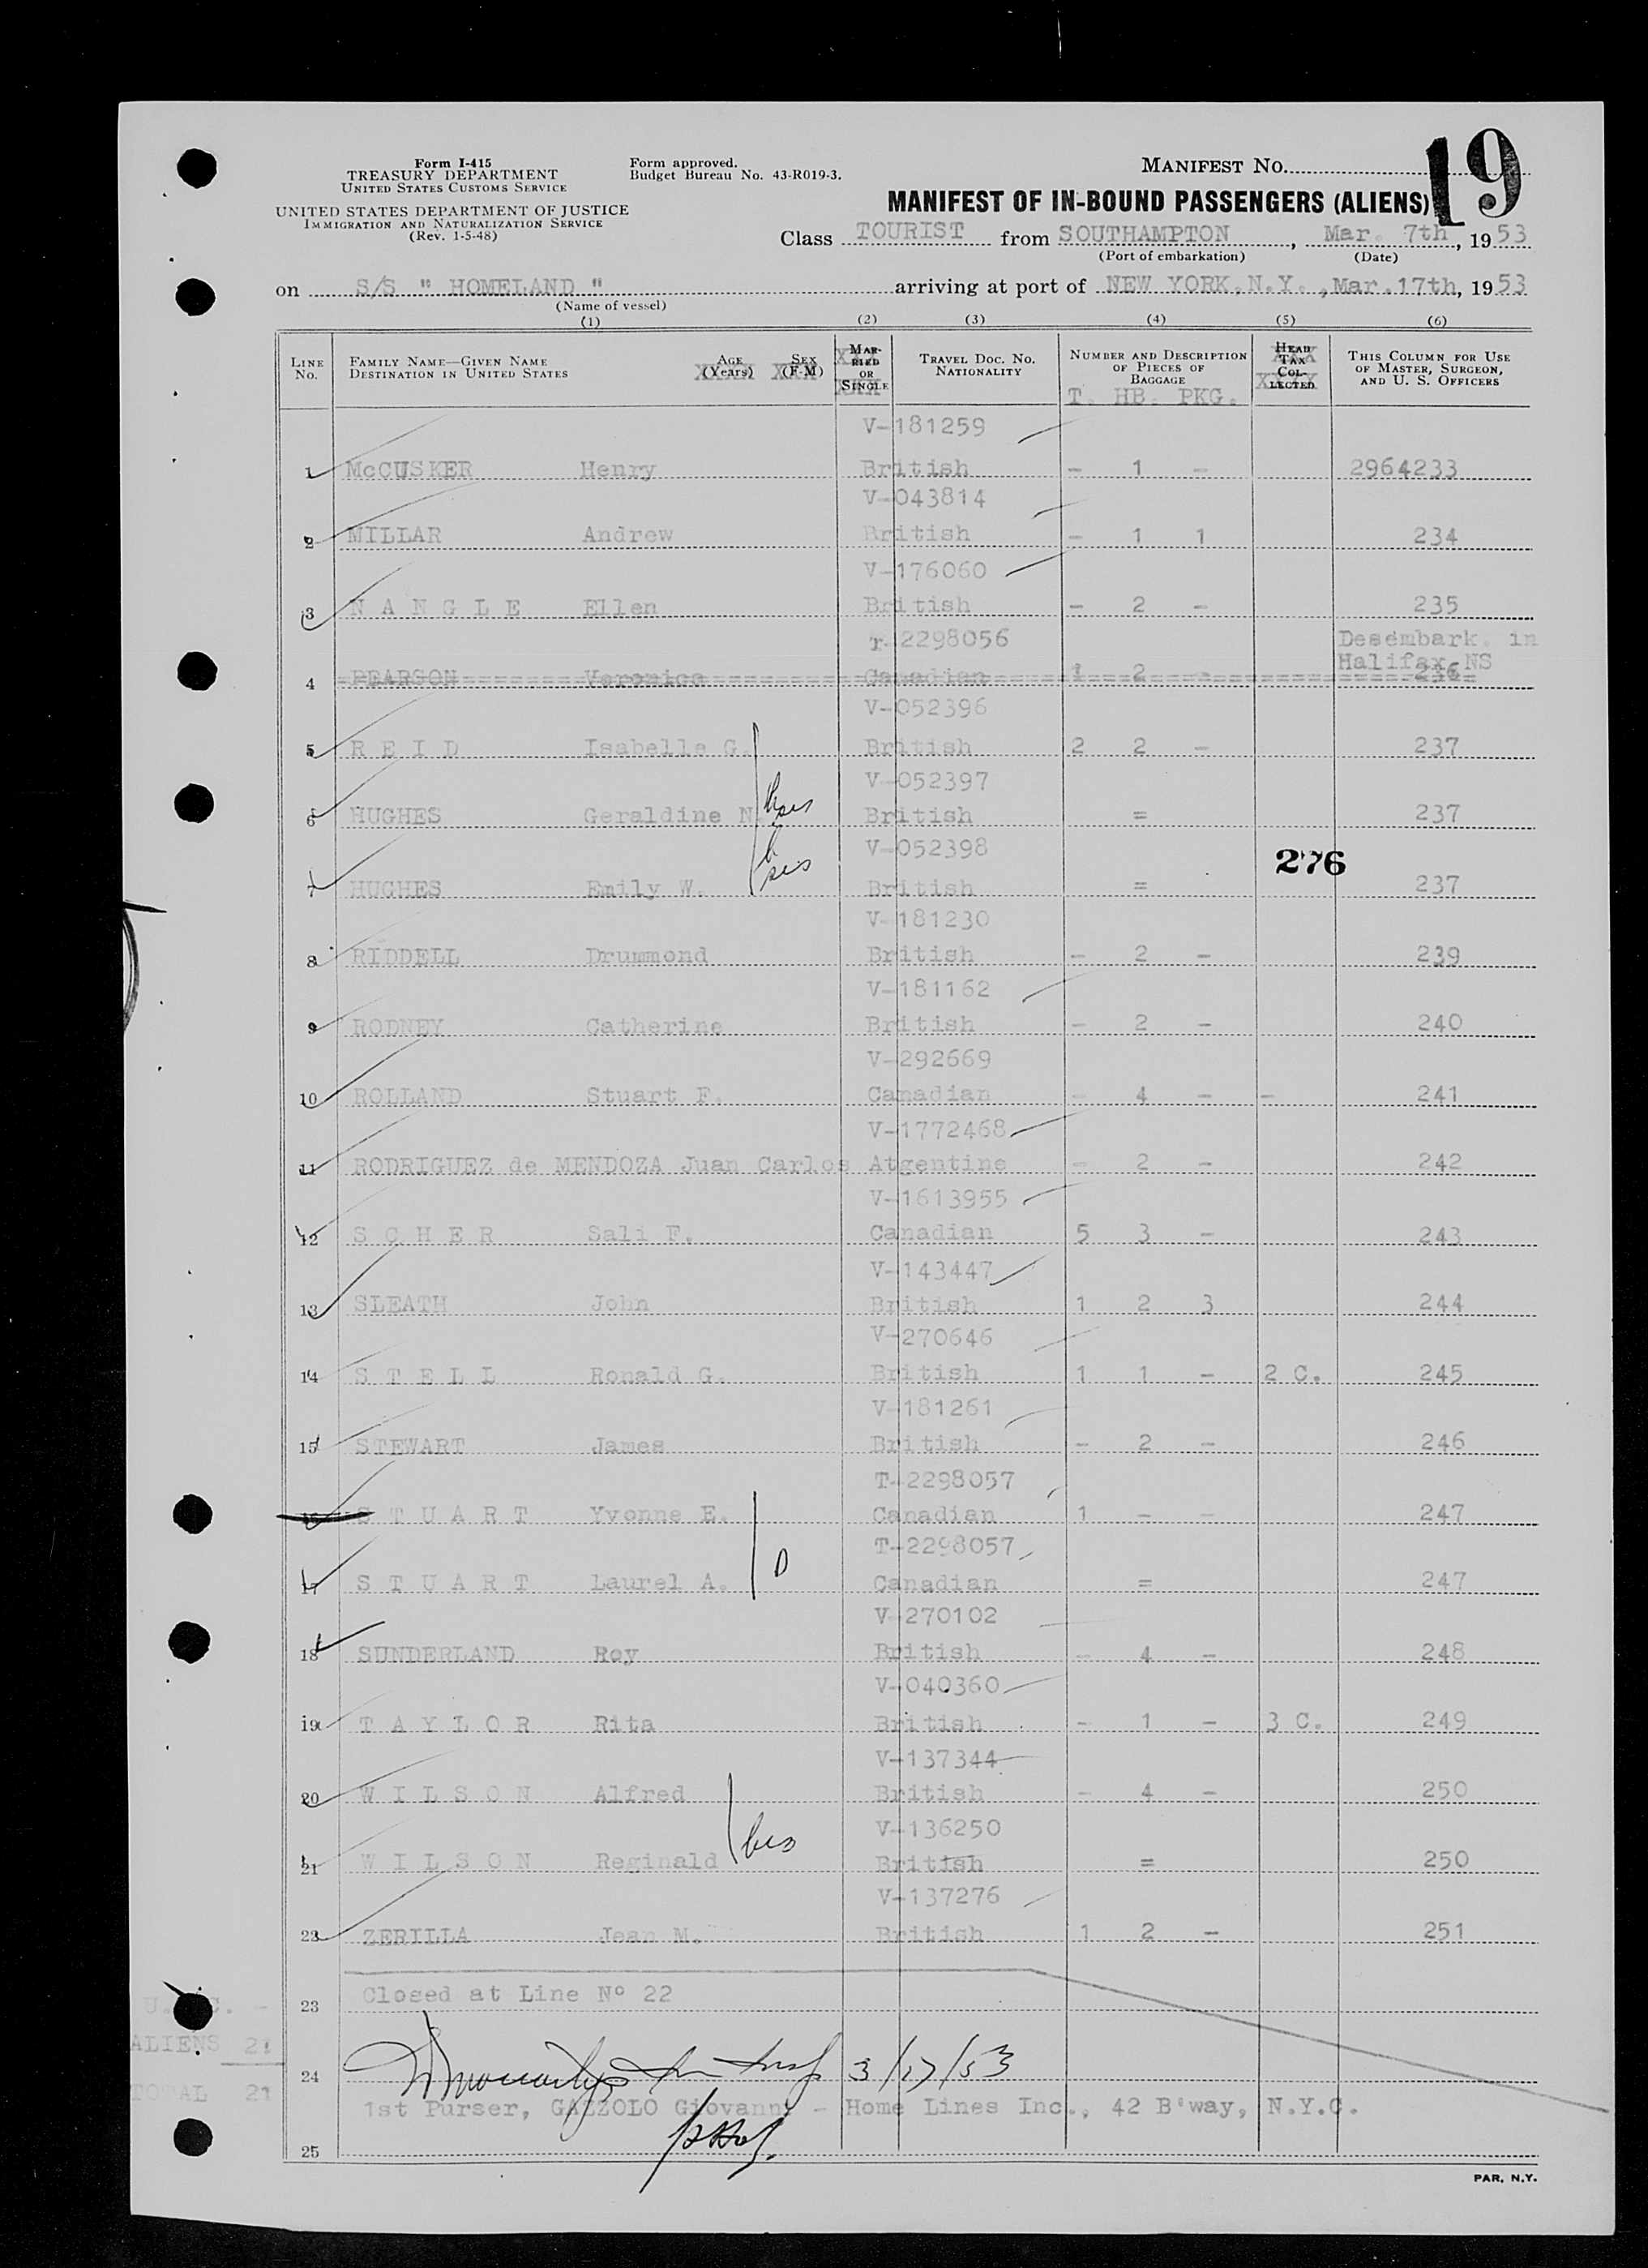 Form I-415
TREASURY DEPARTMENT
UNITED STATES CUSTOMS SERVICE
UNITED STATES DEPARTMENT OF JUSTICE
IMMIGRATION AND NATURALIZATION SERVICE
(Rev. 1-5-48)
Form approved.
Budget Bureau No. 43-R019-3.
MANIFEST NO. 19
MANIFEST OF IN-BOUND PASSENGERS (ALIENS)
Class TOURIST from SOUTHAMPTON, Mar. 7th, 1953
(Port of embarkation) (Date)
on S/S " HOMELAND " arriving at port of NEW YORK, N.Y., Mar. 17th, 1953
(Name of vessel)
(1) (2) (3) (4) (5) (6)
LINE NO. FAMILY NAME—GIVEN NAME DESTINATION IN UNITED STATES AGE (Years) SEX (F-M) MARRIED OR SINGLE TRAVEL DOC. NO. NATIONALITY NUMBER AND DESCRIPTION OF PIECES OF BAGGAGE HEAD TAX COLLECTED THIS COLUMN FOR USE OF MASTER, SURGEON, AND U. S. OFFICERS
T. HB. PKG.
V-181259
1 McCUSKER Henry British - 1 - 2964233
V-043814
2 MILLAR Andrew British - 1 1 234
V-176060
3 N A N G L E Ellen British - 2 - 235
T-2298056 Desembark. in
Halifax, NS
4 PEARSON Veronica Canadian 1 2 - 236
V-052396
5 R E I D Isabelle G. British 2 2 - 237
V-052397
6 HUGHES Geraldine N. British = 237
V-052398
276
7 HUGHES Emily W. British = 237
V-181230
8 RIDDELL Drummond British - 2 - 239
V-181162
9 RODNEY Catherine British - 2 - 240
V-292669
10 ROLLAND Stuart F. Canadian - 4 - - 241
V-1772468
11 RODRIGUEZ de MENDOZA Juan Carlos Atgentine - 2 - 242
V-1613955
12 S C H E R Sali F. Canadian 5 3 - 243
V-143447
13 SLEATH John British 1 2 3 244
V-270646
14 S T E L L Ronald G. British 1 1 - 2 C. 245
V-181261
15 STEWART James British - 2 - 246
T-2298057
16 S T U A R T Yvonne E. Canadian 1 - - 247
T-2298057
17 S T U A R T Laurel A. Canadian = 247
V-270102
18 SUNDERLAND Roy British - 4 - 248
V-040360
19 T A Y L O R Rita British - 1 - 3 C. 249
V-137344
20 W I L S O N Alfred British - 4 - 250
V-136250
21 W I L S O N Reginald British = 250
V-137276
22 ZERILLA Jean M. British 1 2 - 251
23 Closed at Line Nº 22
ALIENS 21
24 3/17/53
TOTAL 21
1st Purser, GAZZOLO Giovanni - Home Lines Inc., 42 B'way, N.Y.C.
25
PAR, N.Y.